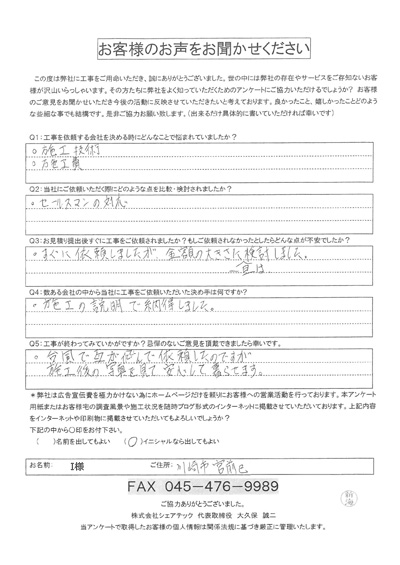 お客様のお声をお聞かせください
この度は弊社に工事をご用命いただき、誠にありがとうございました。世の中には弊社の存在やサービスをご存知ないお客
様が沢山いらっしゃいます。その方たちに弊社をよく知っていただくためのアンケートにご協力いただけるでしょうか? お客様
のご意見をお聞かせいただき今後の活動に反映させていただきたいと考えております。良かったこと、嬉しかったことどのよう
な些細な事でも結構です。是非ご協力お願い致します。(出来るだけ具体的に書いていただければ幸いです)
Q1:工事を依頼する会社を決める時にどんなことで悩まれていましたか?
○施工技術
○施工費
Q2:当社にご依頼いただく際にどのような点を比較・検討されましたか?
○セールスマンの対応
Q3:お見積り提出後すぐに工事をご依頼されましたか?もしご依頼されなかったとしたらどんな点が不安でしたか?
○すぐに依頼しましたが、金額の大きさに検討しました。
Q4:数ある会社の中から当社に工事をご依頼いただいた決め手は何ですか?
○施工の説明で納得しました。
Q5:工事が終わってみていかがですか?忌憚のないご意見を頂戴できましたら幸いです。
○台風で瓦が飛んで依頼したのですが
施工後の写真を見て安心して暮らせます。
*弊社は広告宣伝費を極力かけない為にホームページだけを頼りにお客様への営業活動を行っております。本アンケート
用紙またはお客様宅の調査風景や施工状況を随時ブログ形式のインターネットに掲載させていただいております。上記内容
をインターネットや印刷物に掲載させていただいてもよろしいでしょうか?
下記の中から〇印をお付下さい。
( )名前を出してもよい (○)イニシャルなら出してもよい
お名前: I様 ご住所: 川崎市宮前区
FAX 045-476-9989
ご協力ありがとうございました。
株式会社シェアテック 代表取締役 大久保 誠二
当アンケートで取得したお客様の個人情報は関係法規に基づき厳正に管理いたします。